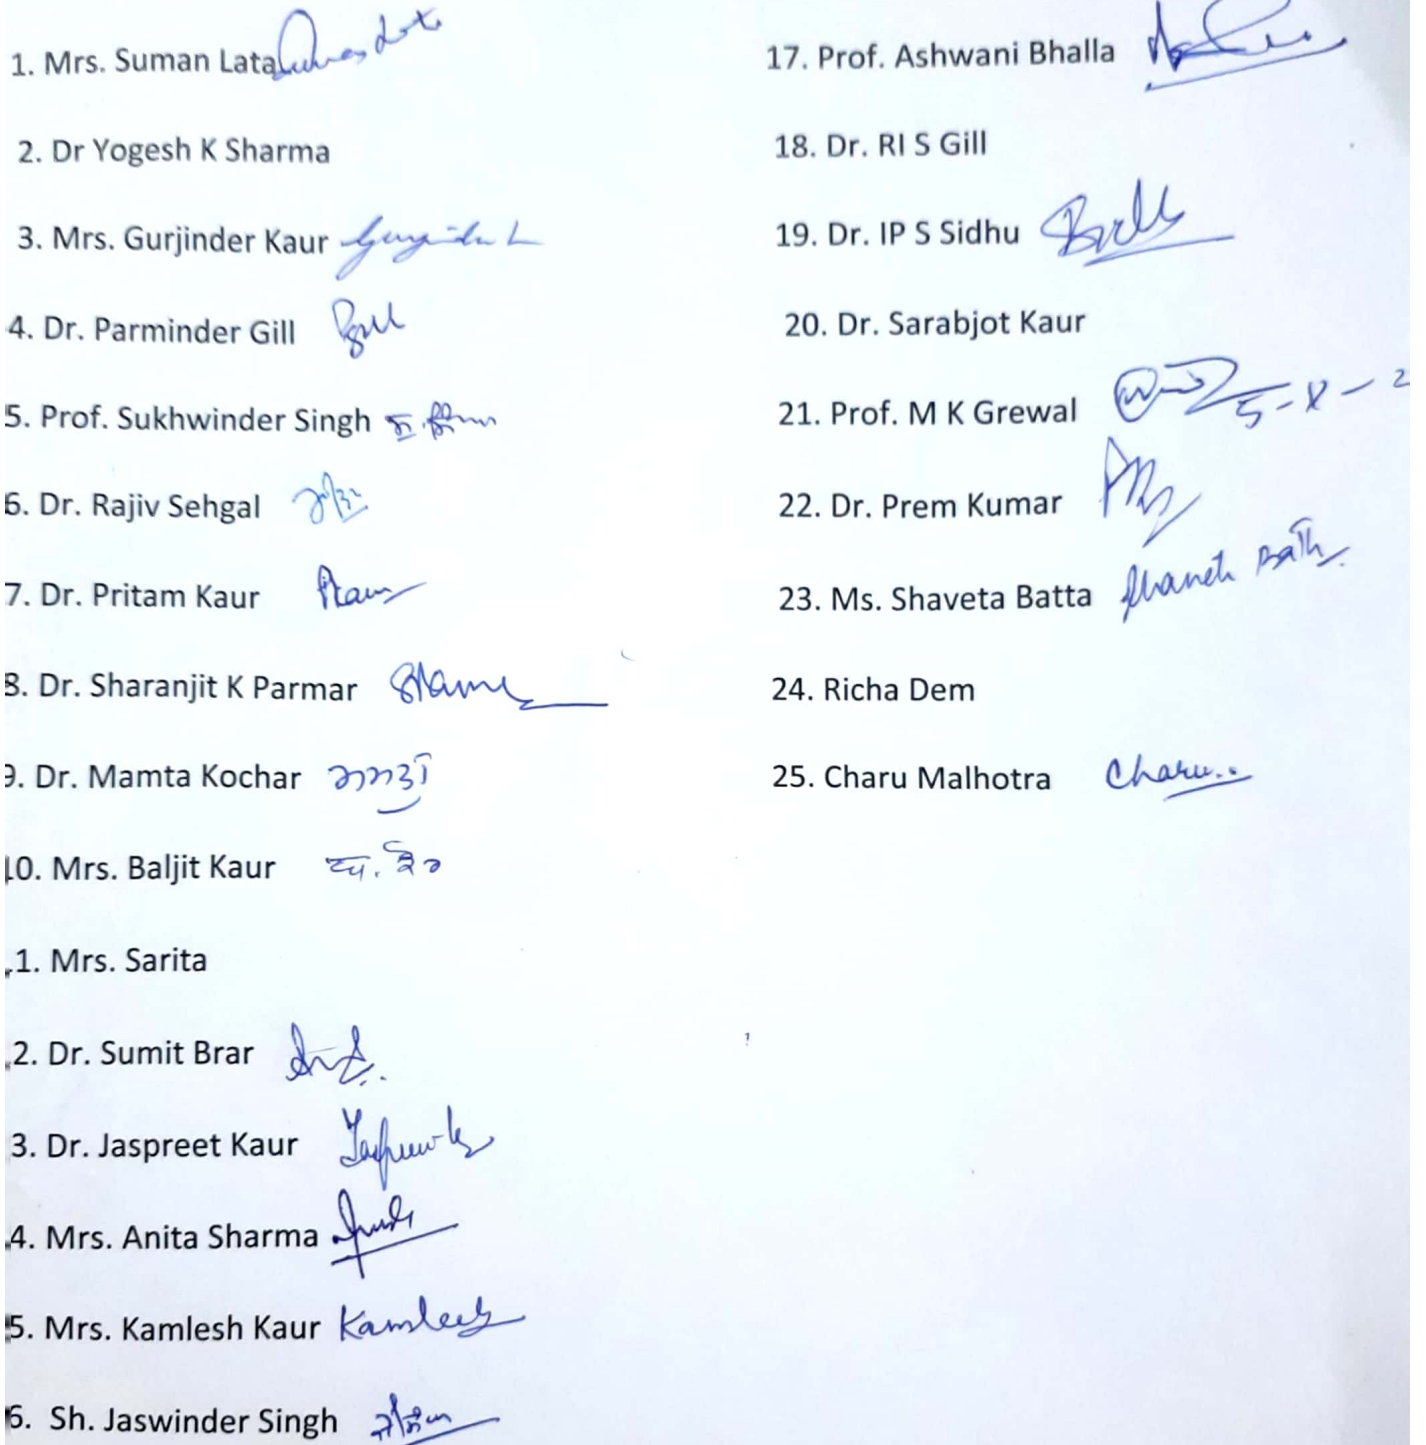 1. Mrs. Suman Lata Suman Lata
2. Dr Yogesh K Sharma
3. Mrs. Gurjinder Kaur
4. Dr. Parminder Gill
5. Prof. Sukhwinder Singh
6. Dr. Rajiv Sehgal
7. Dr. Pritam Kaur
8. Dr. Sharanjit K Parmar
9. Dr. Mamta Kochar
10. Mrs. Baljit Kaur
1. Mrs. Sarita
2. Dr. Sumit Brar
3. Dr. Jaspreet Kaur
4. Mrs. Anita Sharma
5. Mrs. Kamlesh Kaur Kamlesh
6. Sh. Jaswinder Singh
17. Prof. Ashwani Bhalla
18. Dr. RI S Gill
19. Dr. IP S Sidhu
20. Dr. Sarabjot Kaur
21. Prof. M K Grewal 5-X-2
22. Dr. Prem Kumar
23. Ms. Shaveta Batta
24. Richa Dem
25. Charu Malhotra Charu..